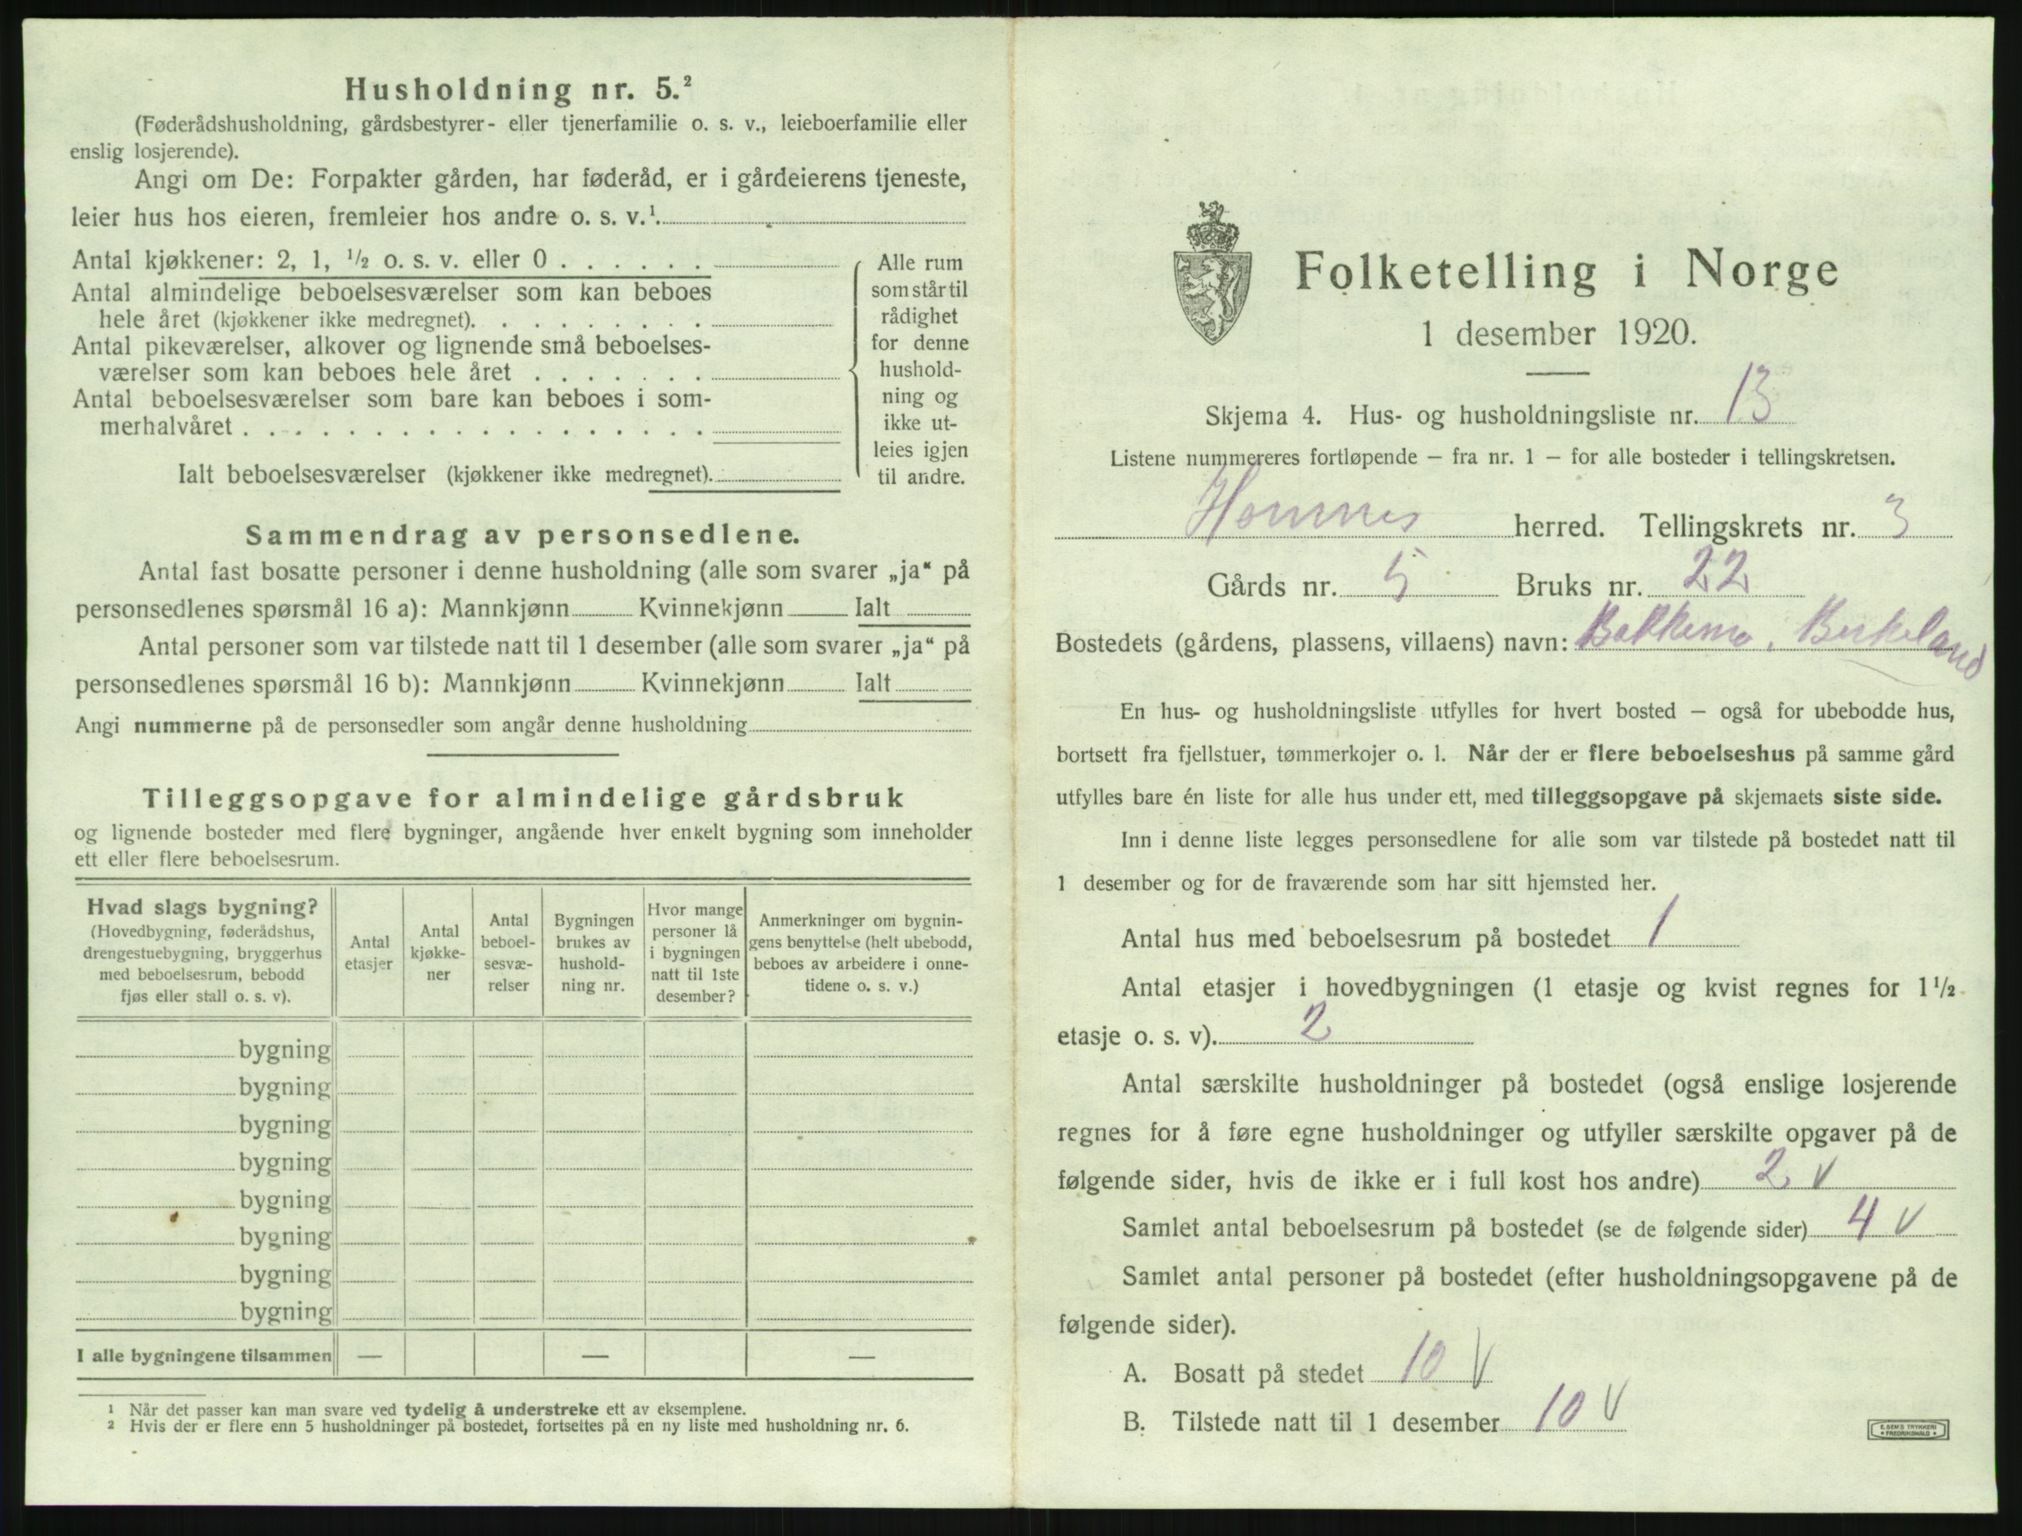 Husholdning nr. 5.²
(Føderådshusholdning, gårdsbestyrer- eller tjenerfamilie o. s. v., leieboerfamilie eller
enslig losjerende).
Angi om De: Forpakter gården, har føderåd, er i gårdeierens tjeneste,
leier hus hos eieren, fremleier hos andre o. s. v.¹
Antal kjøkkener: 2, 1, ½ o. s. v. eller 0
Antal almindelige beboelsesværelser som kan beboes
hele året (kjøkkener ikke medregnet).
Antal pikeværelser, alkover og lignende små beboelses-
værelser som kan beboes hele året
Antal beboelsesværelser som bare kan beboes i som-
merhalvåret
Ialt beboelsesværelser (kjøkkener ikke medregnet).
Alle rum
som står til
rådighet
for denne
hushold-
ning og
ikke ut-
leies igjen
til andre.
Sammendrag av personsedlene.
Antal fast bosatte personer i denne husholdning (alle som svarer „ja“ på
personsedlenes spørsmål 16 a): Mannkjønn Kvinnekjønn Ialt
Antal personer som var tilstede natt til 1 desember (alle som svarer „ja“ på
personsedlenes spørsmål 16 b): Mannkjønn Kvinnekjønn Ialt
Angi nummerne på de personsedler som angår denne husholdning
Tilleggsopgave for almindelige gårdsbruk
og lignende bosteder med flere bygninger, angående hver enkelt bygning som inneholder
ett eller flere beboelsesrum.
Hvad slags bygning?
(Hovedbygning, føderådshus,
drengestuebygning, bryggerhus
med beboelsesrum, bebodd
fjøs eller stall o. s. v).
Antal
etasjer
Antal
kjøkke-
ner
Antal
beboel-
sesvæ-
relser
Bygningen
brukes av
hushold-
ning nr.
Hvor mange
personer lå
i bygningen
natt til 1ste
desember?
Anmerkninger om bygnin-
gens benyttelse (helt ubebodd,
beboes av arbeidere i onne-
tidene o. s. v.)
bygning
bygning
bygning
bygning
bygning
bygning
bygning
bygning
I alle bygningene tilsammen — — —
¹ Når det passer kan man svare ved tydelig å understreke ett av eksemplene.
² Hvis der er flere enn 5 husholdninger på bostedet, fortsettes på en ny liste med husholdning nr. 6.
Folketelling i Norge
1 desember 1920.
Skjema 4. Hus- og husholdningsliste nr. 13
Listene nummereres fortløpende — fra nr. 1 — for alle bosteder i tellingskretsen.
Homnes herred. Tellingskrets nr. 3
Gårds nr. 5 Bruks nr. 22
Bostedets (gårdens, plassens, villaens) navn: Bakkemo, Birkeland
En hus- og husholdningsliste utfylles for hvert bosted — også for ubebodde hus,
bortsett fra fjellstuer, tømmerkojer o. l. Når der er flere beboelseshus på samme gård
utfylles bare én liste for alle hus under ett, med tilleggsopgave på skjemaets siste side.
Inn i denne liste legges personsedlene for alle som var tilstede på bostedet natt til
1 desember og for de fraværende som har sitt hjemsted her.
Antal hus med beboelsesrum på bostedet 1
Antal etasjer i hovedbygningen (1 etasje og kvist regnes for 1½
etasje o. s. v). 2
Antal særskilte husholdninger på bostedet (også enslige losjerende
regnes for å føre egne husholdninger og utfyller særskilte opgaver på de
følgende sider, hvis de ikke er i full kost hos andre) 2 v
Samlet antal beboelsesrum på bostedet (se de følgende sider) 4 v
Samlet antal personer på bostedet (efter husholdningsopgavene på de
følgende sider).
A. Bosatt på stedet 10 v
B. Tilstede natt til 1 desember 10 v
E. SEM'S TRYKKERI
FREDRIKSHALD